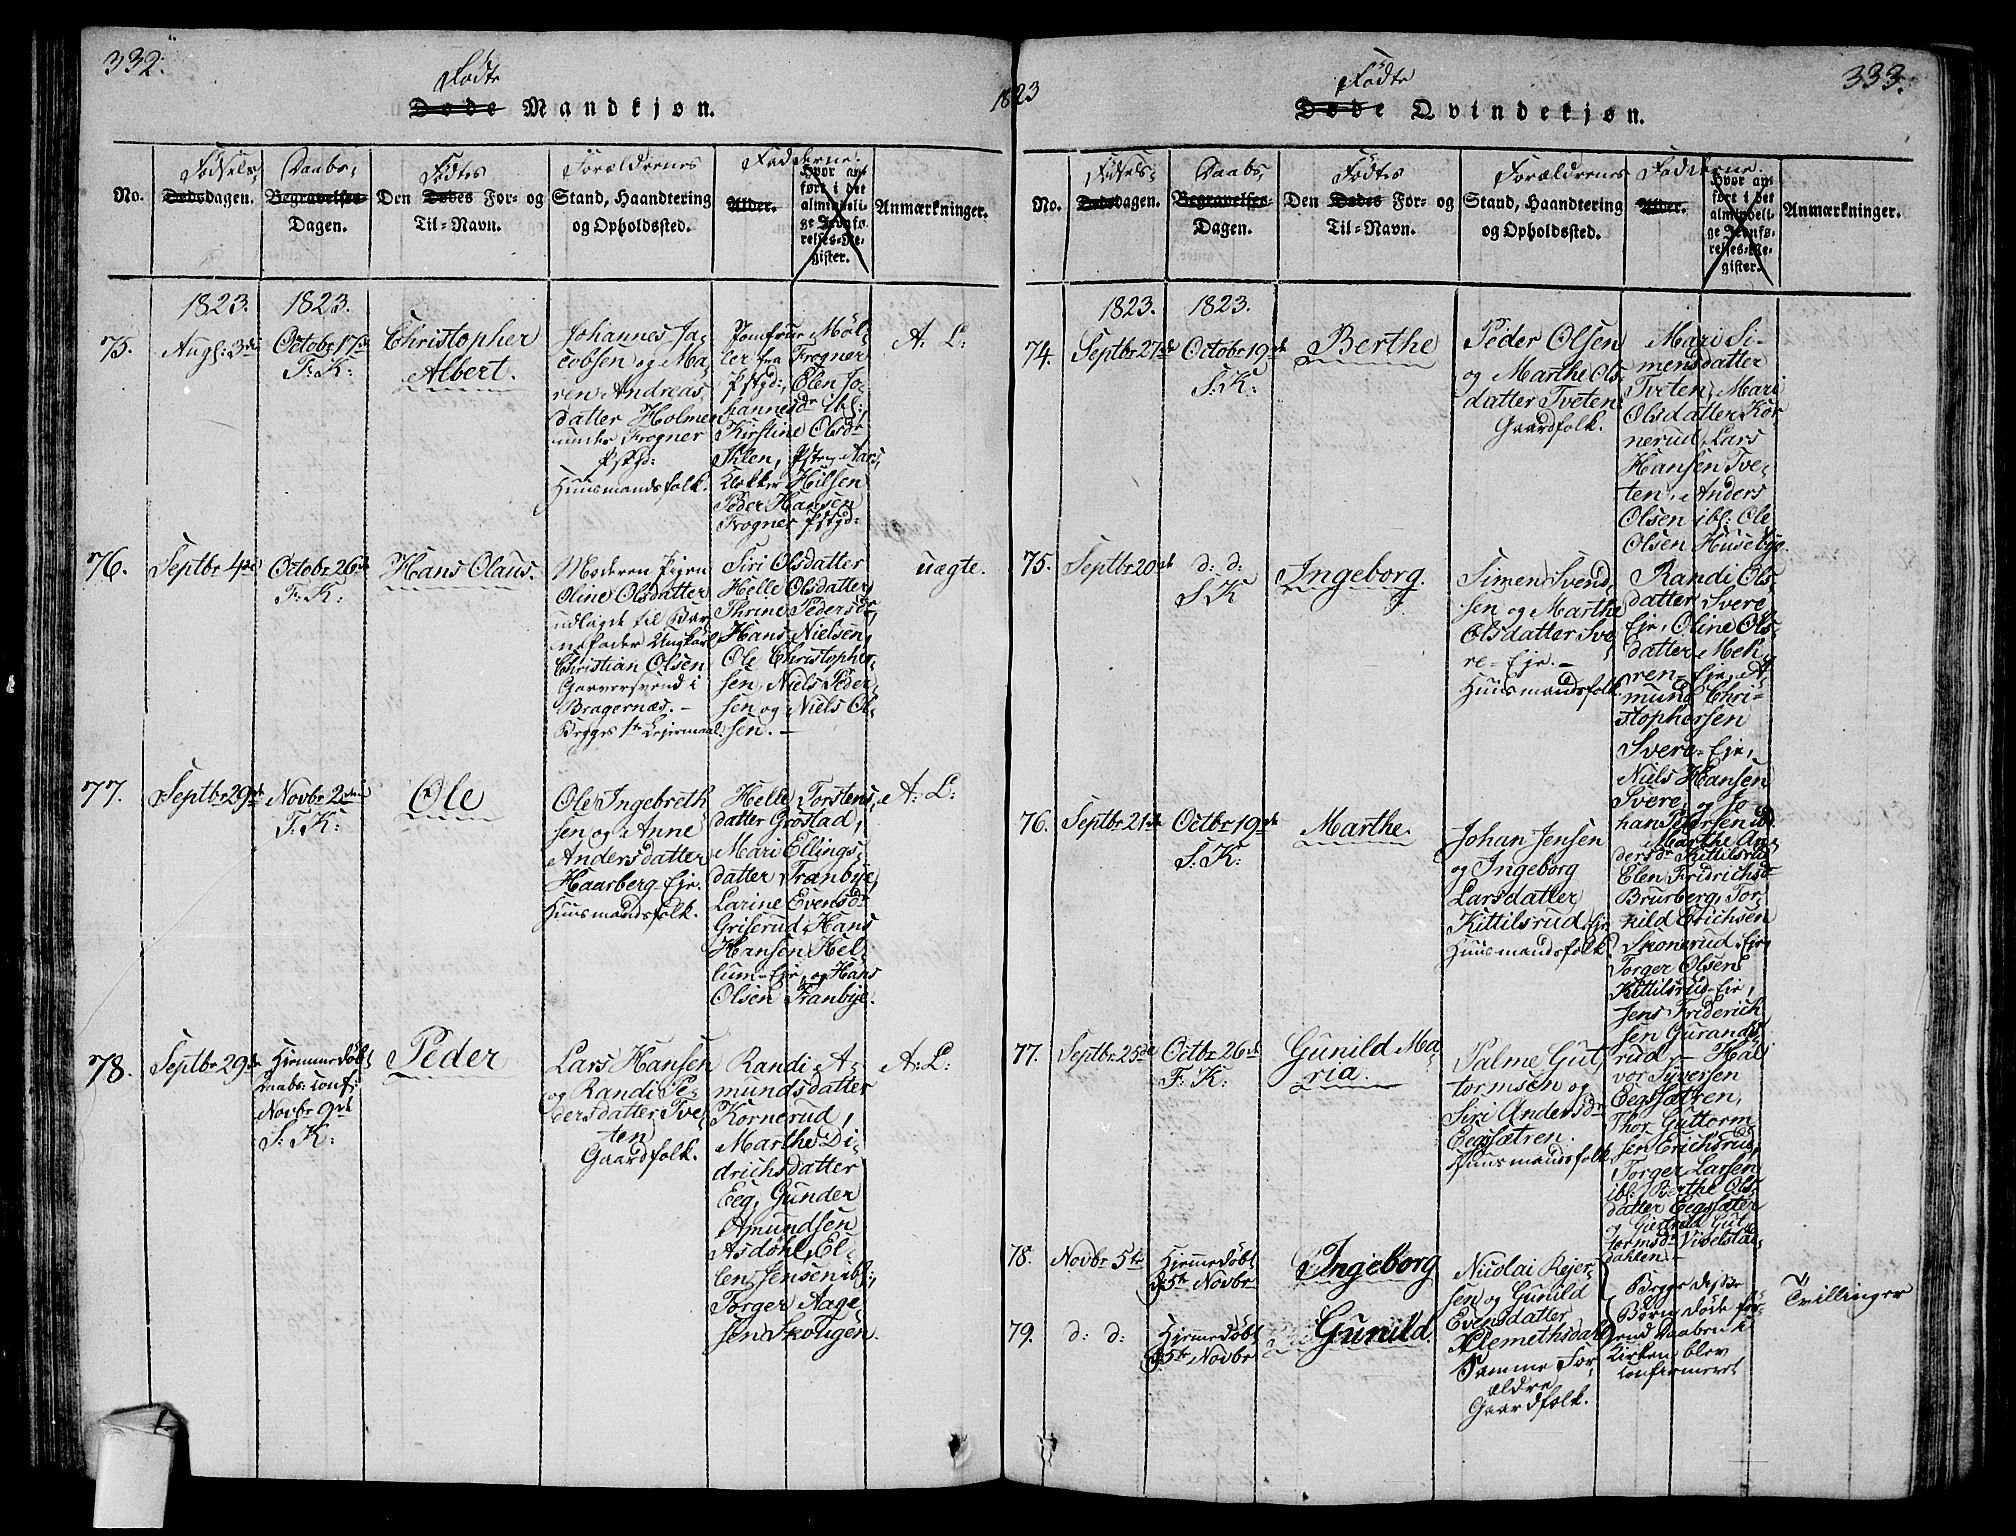 332.
Fødte
Døde Mandkjøn.
1823
No.
Fødsels-
Dødsdagen.
Daabs-
Begravelses-
Dagen.
Fødtes
Den Dødes For- og
Til-Navn.
Forældrenes
Stand, Haandtering
og Opholdssted.
Fadderne.
Alder.
Hvor an-
ført i det
almindeli-
ge Jevnfø-
relses-Re-
gister.
Anmærkninger.
1823.
1823.
75.
Augs: 3die
Octobr 17de
F: K:
Christopher
Albert.
Johannes Ja-
cobsen og Ma-
ren Andreas-
datter Holmen
under Frogner
Pstgd:
Huusmandsfolk.
Jomfrue Møl-
ler fra Frogner
Pstgd:, Elen Jo-
hannesdr ibl:,
Kirstine Olsdr
Ihlen,
Klokker Hilsen
Peder Hansen
Frogner Pstgd:
A: L:
76.
Septbr 4de
Octobr 26de
F: K:
Hans Olaus.
Moderen Pigen
Oline Olsdatter
udlagde til Bar-
nefader Ungkarl
Christian Olsen
Garversvend i
Bragernæs. –
Begges 1te Leiermaal.
Siri Olsdatter
Helle Olsdatter,
Thrine Pedersdr,
Hans Nielsen,
Ole Christopher-
sen, Niels Peder-
sen og Niels Ol-
sen. –
uægte.
77.
Septbr 29de
Novbr 2den
F: K:
Ole
Ole Ingebreth-
sen og Anne
Andersdatter
Haarberg-Eje.
Huusmandsfolk.
Helle Torstens-
datter Grøstad,
Mari Ellings-
datter Frænbye,
Larine Evensdr
Griserud, Hans
Hansen Hel-
lum-Eje, og Hans
Olsen Franbye.
A: L:
78.
Septbr 29de
Hjemmedøbt
Daabs: conf:
Novbr 9de
S: K:
Peder
Lars Hansen
og Randi Pe-
dersdatter Tve-
ten
Gaardfolk.
Randi A-
mundsdatter
Kornerud,
Marthe Di-
drichsdatter
Eeg, Gunder
Amundsen
Asdøhl, El-
len Jensen ibl:,
Torger Aage-
sen Skougen.
A: L:
333.
Fødte
Døde Qvindekjøn.
No.
Fødsels-
Dødsdagen.
Daabs-
Begravelses-
Dagen.
Fødtes
Den Dødes For- og
Til-Navn.
Forældrenes
Stand, Haandtering
og Opholdssted.
Fadderne.
Alder.
Hvor an-
ført i det
almindeli-
ge Jevnfø-
relses-Re-
gister.
Anmærkninger.
1823.
1823.
74.
Septbr 27de
Octobr 19de
S: K:
Berthe
Peder Olsen
og Marthe Ols-
datter Tveten
Gaardfolk.
Mari Si-
mensdatter
Tveten, Mari
Olsdatter Kor-
nerud, Lars
Hansen Tve-
ten, Anders
Olsen ibl: Ole
Olsen Husebye.
75.
Septbr 20de
d: d:
S: K
Ingeborg.
Simen Svend-
sen og Marthe
Olsdatter Sve-
re-Eje. –
Huusmandsfolk.
Randi Ols-
datter Svere
Eje, Oline Ols-
datter Meh-
ren-Eje, A-
mund Chri-
stophersen
Svere-Eje,
Niels Hansen
Svere, og Jo-
han Petersen ibl
76.
Septbr 21de
Octbr 19de
S: K:
Marthe.
Johan Jensen
og Ingeborg
Larsdatter
Kittilsrud Eje
Huusmandsfolk
Marthe An-
dersdr Kittilsrud
Elen Fridrichsdr
Brurberg, Tor-
kild Erichsen
Skonerud-Eje,
Torger Olsen
Kittilsrud-Eje,
Jens Friderich-
sen Gurands-
rud –
77.
Septbr 25de
Octbr 26de
F: K:
Gunild Ma-
ria.
Palme Gut-
tormsen og
Siri Andersdr
Eegsætren.
Huusmandsfolk
Hal-
vor Syversen
Eegsætren,
Thor Guttorm-
sen Erichsrud,
Torger Larsen
ibl: Berthe Ols-
datter Eegsæter
og Giertrud Gut-
tormsdr Vivelstad-
dahlen. –
78.
Novbr 5te
Hjemmedøbt
d 5te Novbr
Ingeborg
Nicolai Rejer-
sen og Gunild
Evensdatter
Klemethsdal
Begge disse
Børn døde for-
end Daaben i
Kirken blev
confirmeret
Tvillinger
79.
d: d:
Hjemmedøbt
d 5te Novbr
Gunild.
Samme For-
ældre
Gaardfolk.